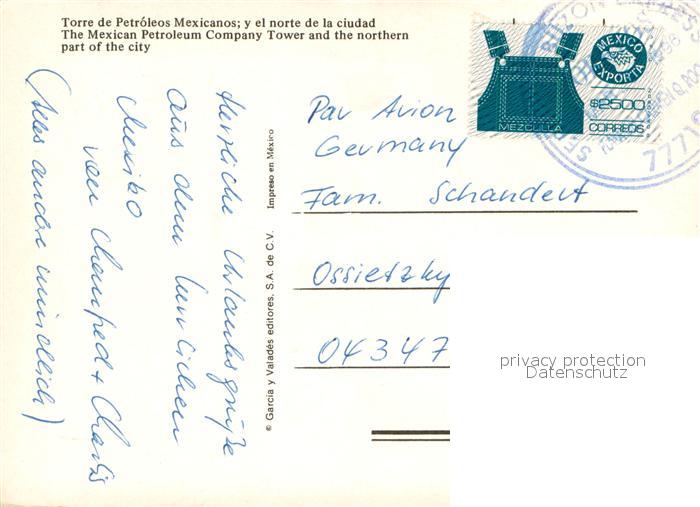 Torre de Petróleos Mexicanos; y el norte de la ciudad
The Mexican Petroleum Company Tower and the northern
part of the city
Herzliche Urlaubsgrüße
aus dem herrlichen
Mexiko
von Manfred +
(Alles andere mündlich)
© García y Valadés editores, S.A. de C.V. Impreso en México
MEXICO
EXPORTA
$2500
CORREOS
MEZCLILLA
7771
Par Avion
Germany
Fam. Schandert
Ossietzky
04347
privacy protection
Datenschutz